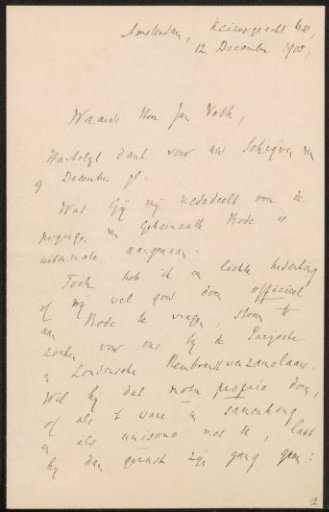 Amsterdam, Keizersgracht
12 December 1905,
Waarde Heer Jan Veth,
Hartelijk dank voor uw schrijven van
9 December jl.
Wat Gij mij mededeelt van de
van Geheimrath Bode is
uitermate aangenaam.
Toch heb ik een lichte bedenking
of wij wel goed doen officieel
aan Bode te vragen, steun te
zoeken voor ons bij de Parijsche
en Londensche Rembrandt verzamelaars.
Wil hij dat motu proprio doen,
of als 't ware in samenhang
en als unisono met U, laat
hij dan gerust zijn gang gaan:
1